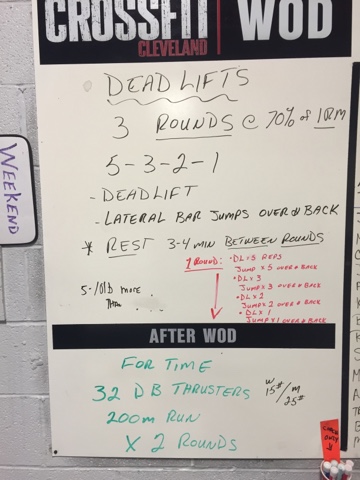 CROSSFIT
CLEVELAND
WOD
DEADLIFTS
3 ROUNDS @ 70% of 1RM
5-3-2-1
- DEADLIFT
- LATERAL BAR JUMPS OVER & BACK
* REST 3-4 MIN BETWEEN ROUNDS
1 ROUND: • DL x 5 REPS
JUMP x 5 OVER & BACK
• DL x 3
JUMP x 3 OVER & BACK
• DL x 2
JUMP x 2 OVER & BACK
• DL x 1
JUMP x 1 OVER & BACK
5-10 lb more
WEEKEND
AFTER WOD
FOR TIME
32 DB THRUSTERS W 15#/M 25#
200m RUN
X 2 ROUNDS